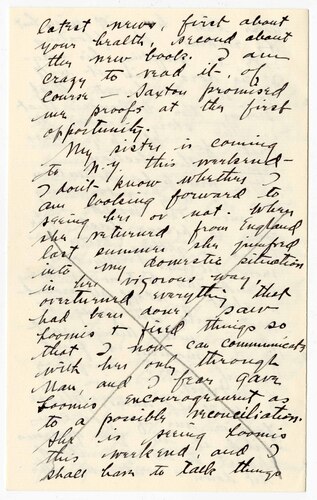 latest news, first about
your health, second about
the new book. I am
crazy to read it, of
course — Saxton promised
me proofs at the first
opportunity.
My sister is coming
to N.Y this weekend —
I don't know whether I
am looking forward to
seeing her or not. When
she returned from England
last summer she jumped
into my domestic situation
in her vigorous way,
overturned everything that
had been done, saw
Loomis & fixed things so
that I now can communicate
with her only through
Man, and I fear gave
Loomis encouragement as
to a possible reconciliation.
She is seeing Loomis
this weekend, and I
shall have to talk things